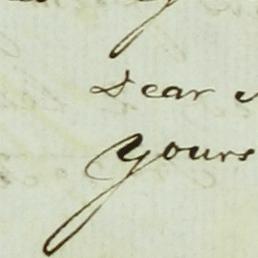 Dear
yours